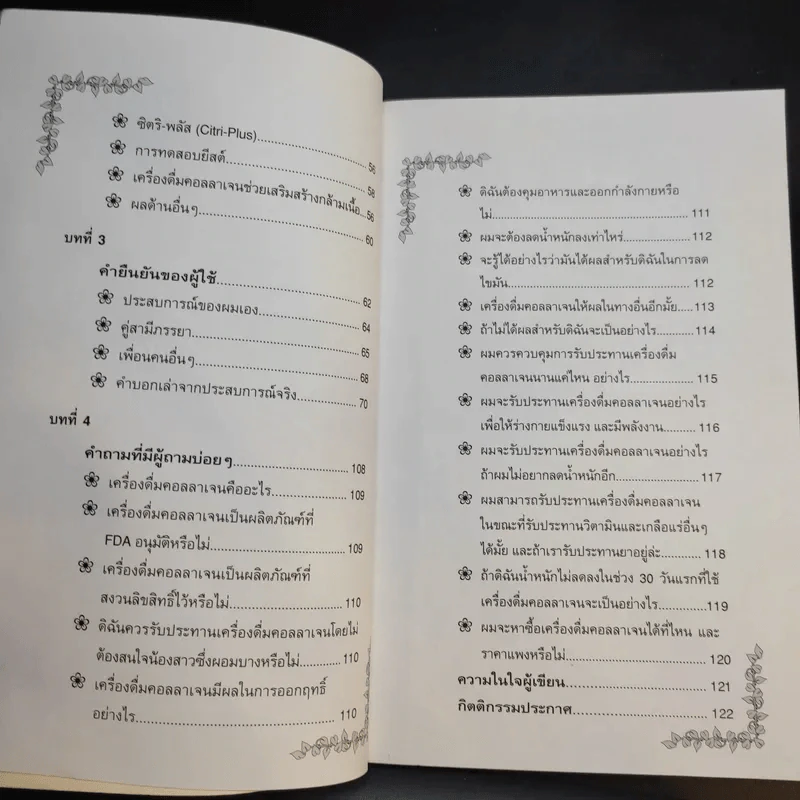 ซิตริ-พลัส (Citri-Plus)..................................56
การทดสอบยีสต์..................................58
เครื่องดื่มคอลลาเจนช่วยเสริมสร้างกล้ามเนื้อ...58
ผลด้านอื่นๆ..................................60
บทที่ 3
คำยืนยันของผู้ใช้..................................62
ประสบการณ์ของผมเอง..................................64
คู่สามีภรรยา..................................65
เพื่อนคนอื่นๆ..................................68
คำบอกเล่าจากประสบการณ์จริง..................................70
บทที่ 4
คำถามที่มีผู้ถามบ่อยๆ..................................108
เครื่องดื่มคอลลาเจนคืออะไร..................................109
เครื่องดื่มคอลลาเจนเป็นผลิตภัณฑ์ที่
FDA อนุมัติหรือไม่..................................109
เครื่องดื่มคอลลาเจนเป็นผลิตภัณฑ์ที่
สงวนลิขสิทธิ์ไว้หรือไม่..................................110
ดิฉันควรรับประทานเครื่องดื่มคอลลาเจนโดยไม่
ต้องสนใจน้องสาวซึ่งผอมบางหรือไม่............110
เครื่องดื่มคอลลาเจนมีผลในการออกฤทธิ์
อย่างไร..................................110
ดิฉันต้องคุมอาหารและออกกำลังกายหรือ
ไม่..................................111
ผมจะต้องลดน้ำหนักลงเท่าไหร่......................112
จะรู้ได้อย่างไรว่ามันได้ผลสำหรับดิฉันในการลด
ไขมัน..................................112
เครื่องดื่มคอลลาเจนให้ผลในทางอื่นอีกมั้ย.....113
ถ้าไม่ได้ผลสำหรับดิฉันจะเป็นอย่างไร............114
ผมควรควบคุมการรับประทานเครื่องดื่ม
คอลลาเจนนานแค่ไหน อย่างไร..................115
ผมจะรับประทานเครื่องดื่มคอลลาเจนอย่างไร
เพื่อให้ร่างกายแข็งแรง และมีพลังงาน..........116
ผมจะรับประทานเครื่องดื่มคอลลาเจนอย่างไร
ถ้าผมไม่อยากลดน้ำหนักอีก......................117
ผมสามารถรับประทานเครื่องดื่มคอลลาเจน
ในขณะที่รับประทานวิตามินและเกลือแร่อื่นๆ
ได้มั้ย และถ้าเรารับประทานยาอยู่ล่ะ............118
ถ้าดิฉันน้ำหนักไม่ลดลงในช่วง 30 วันแรกที่ใช้
เครื่องดื่มคอลลาเจนจะเป็นอย่างไร..............119
ผมจะหาซื้อเครื่องดื่มคอลลาเจนได้ที่ไหน และ
ราคาแพงหรือไม่..................................120
ความในใจผู้เขียน..................................121
กิตติกรรมประกาศ..................................122